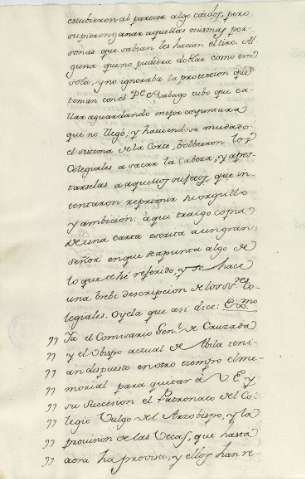 estubieron al parecer algo caidos, pero
supieron ganar aquellas mismas per-
sonas que sabian les hacian el tiro. Al-
guna que no pudiera doblar como
sola, y no ignoraba la proteccion que
tenian con el Pe. Rabago tubo que ca-
llar aguardando mejor coyuntura
que no llegó, y haviendose mudado
el sistema de la Corte, bolbieron los
Colegiales a sacar la Cabeza, y apres-
tarselas a aquellos sugetos que in-
tentaron reprimir su orgullo
y ambicion. aqui traigo copia
de una carta escrita a un gran
Señor en que se apunta algo de
lo que te hé referido, y se hace
una brebe descripcion de los SSres. Co-
legiales. Oyela que asi dice: Exmo
"" Sr. el Comisario Genl. de Cruzada
"" y el Obispo actual de Abila teni-
"" an dispuesto en otro tiempo el me-
"" morial para quitar á V.E. y
"" su Succesion el Patronato del Co-
"" legio Vulgo del Arzobispo, y la
"" provision de las Vecas, que hasta
"" aora ha provisto, y ellos han re-